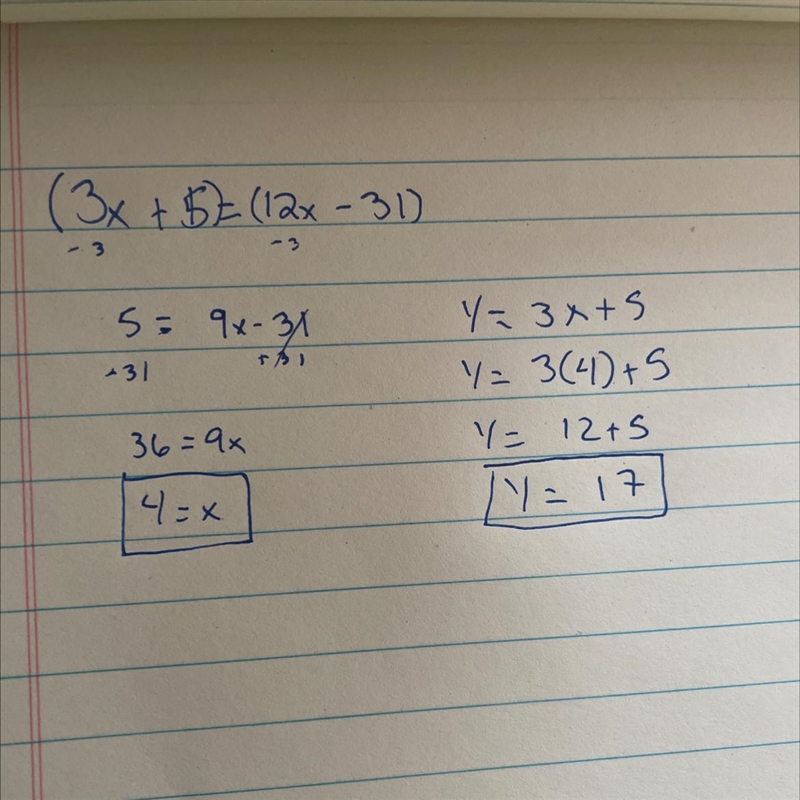 (3x + 5)=(12x - 31)
- 3 - 3
5 = 9x - 31
+31 +31
36 = 9x
4 = x
y = 3x + 5
y = 3(4) + 5
y = 12 + 5
y = 17